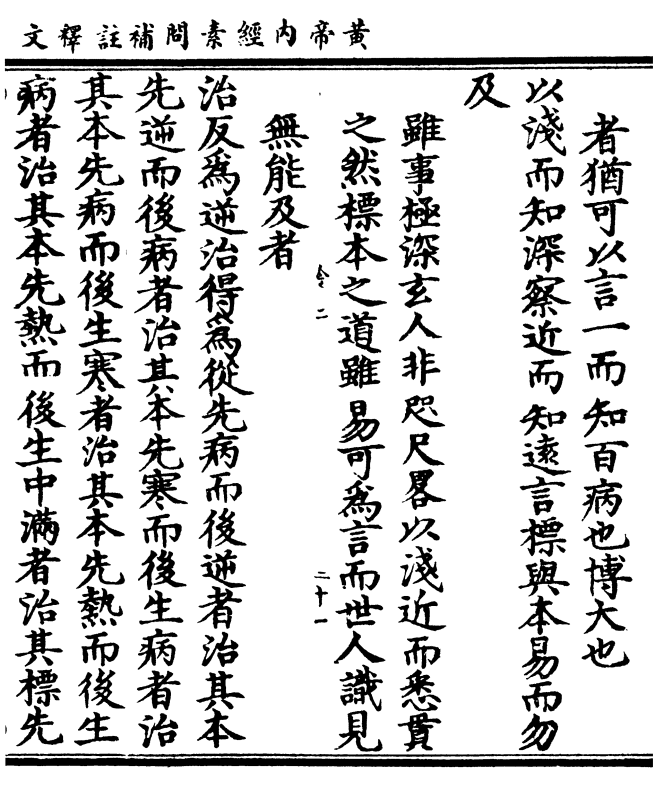 黃帝內經素問補註釋文
者猶可以言一而知百病也博大也
以淺而知深察近而知遠言標與本易而勿
及
雖事極深玄人非咫尺畧以淺近而悉貫
之然標本之道雖易可為言而世人識見
無能及者
二
二十一
治反為逆治得為從先病而後逆者治其本
先逆而後病者治其本先寒而後生病者治
其本先病而後生寒者治其本先熱而後生
病者治其本先熱而後生中滿者治其標先